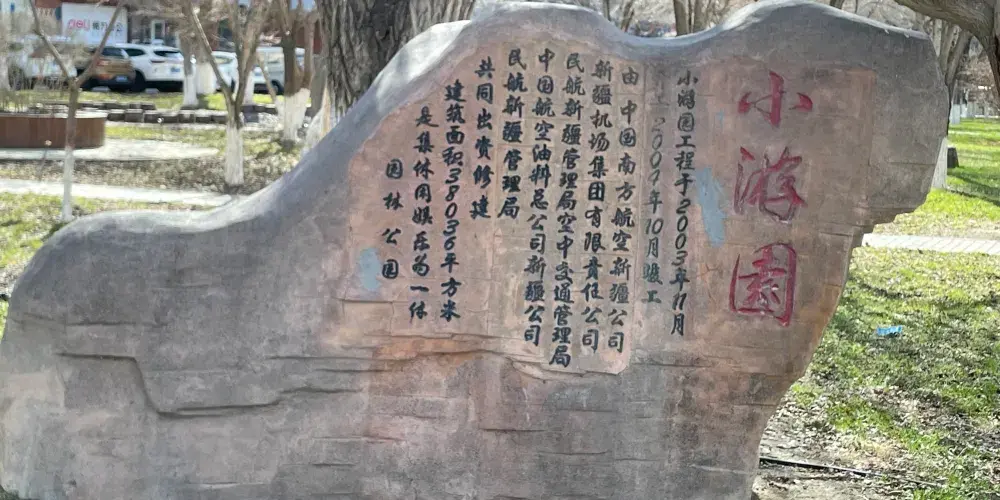 小游园
小游园工程于2003年11月
2004年10月竣工
由中国南方航空新疆公司
新疆机场集团有限责任公司
民航新疆管理局空中交通管理局
中国航空油料总公司新疆公司
民航新疆管理局
共同出资修建
建筑面积38036平方米
是集休闲娱乐为一体
园林公园
deli